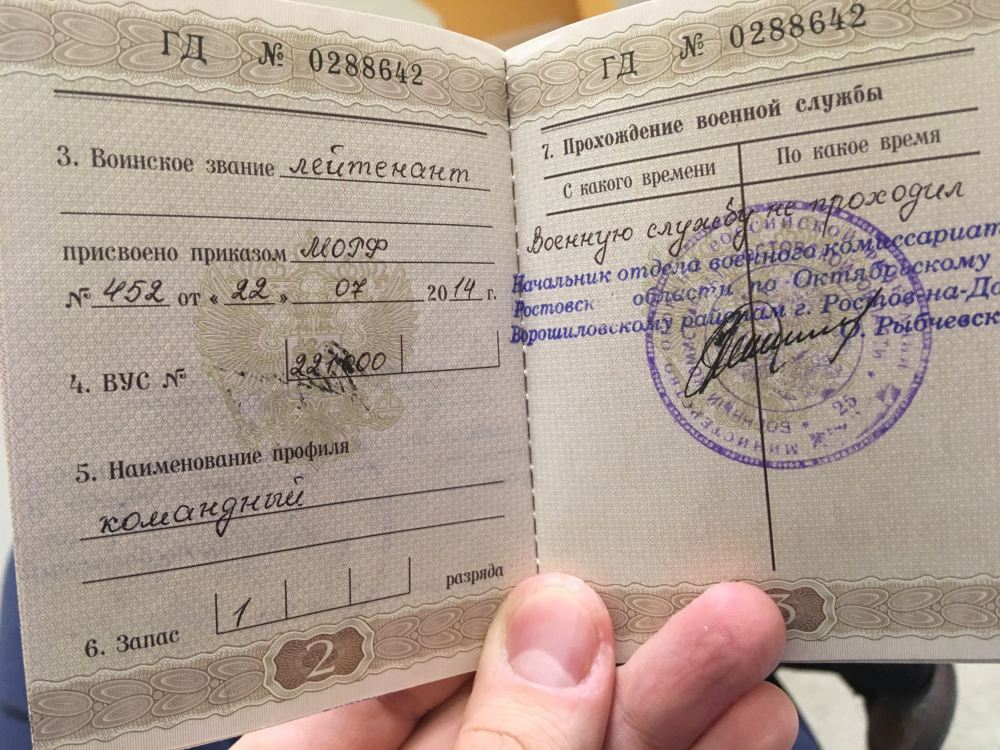 ГД № 0288642
3. Воинское звание лейтенант
присвоено приказом МОРФ
№ 452 от « 22 » 07 2014 г.
4. ВУС №
5. Наименование профиля
командный
6. Запас 1 разряда
2
ГД № 0288642
7. Прохождение военной службы
С какого времени По какое время
Военную службу не проходил
Начальник отдела военного комиссариат
Ростовск области по Октябрьскому
Ворошиловскому районам г. Ростов-на-До
Рыбчевск
25
3